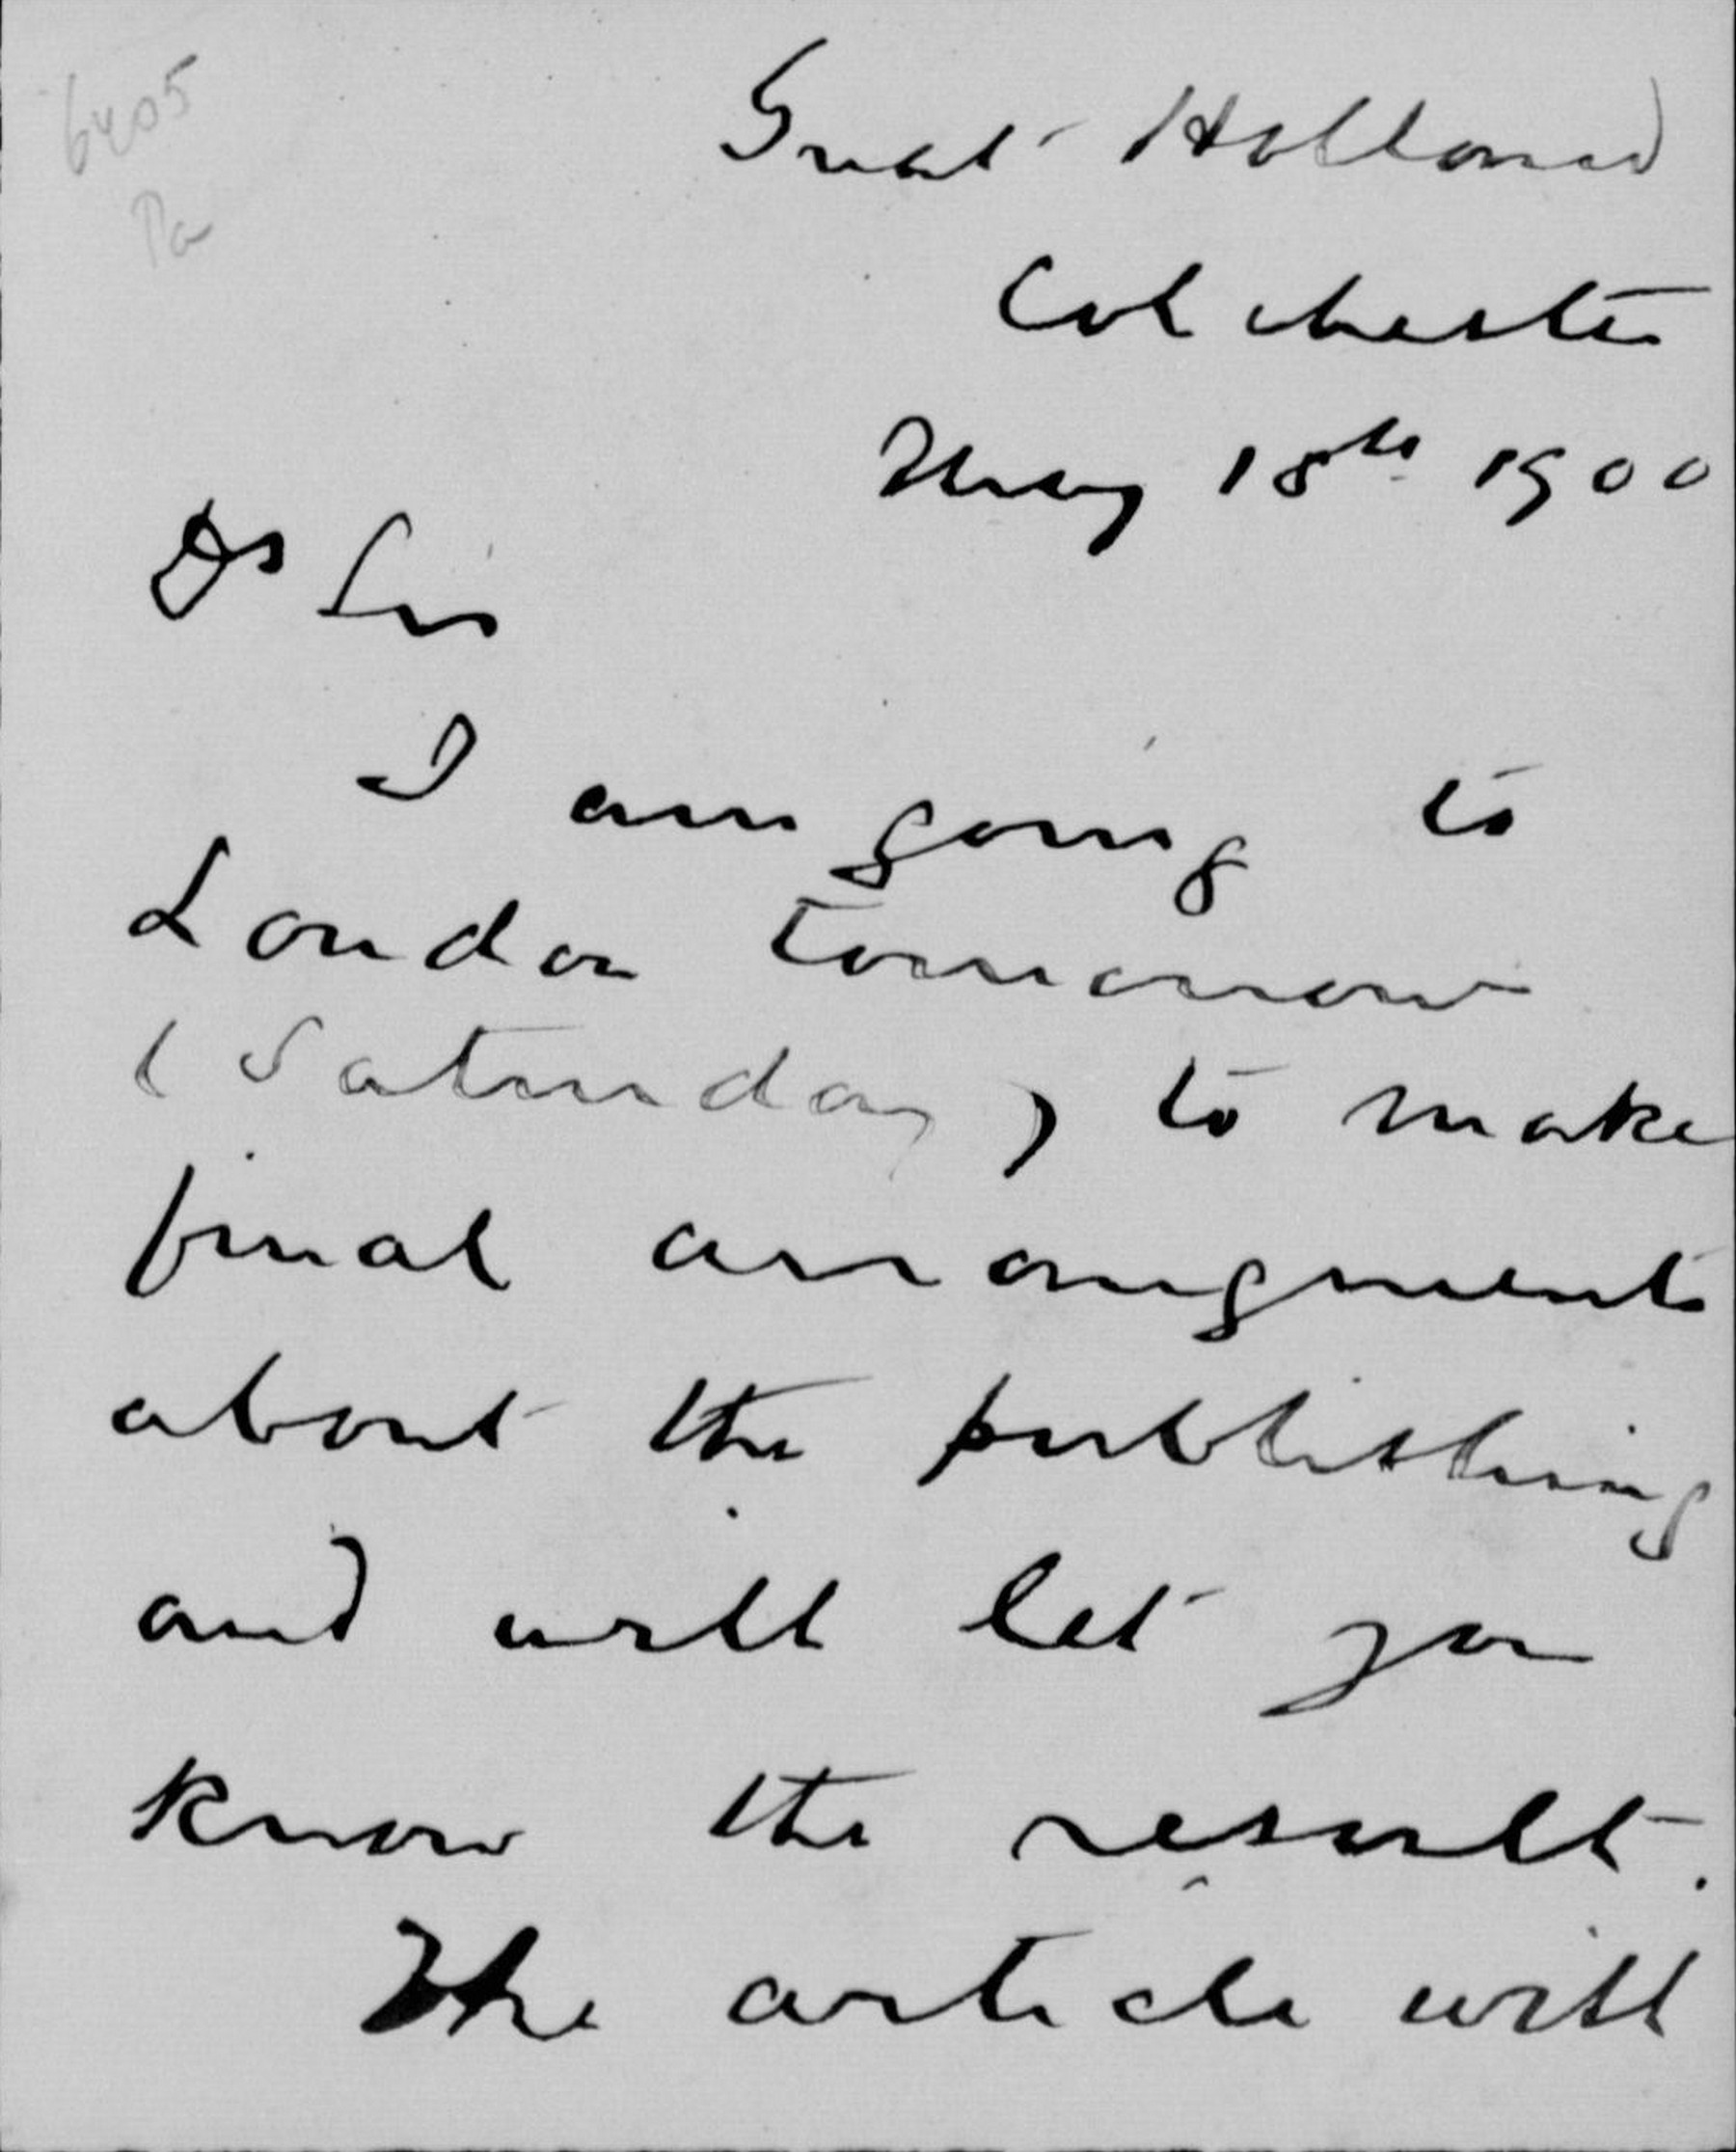 6405
Pa
Great Holland
Colchester
May 18th 1900
Dr Sir
I am going to
London tomorrow
(Saturday) to make
final arrangments
about the publishing
and will let you
know the result.
The article will